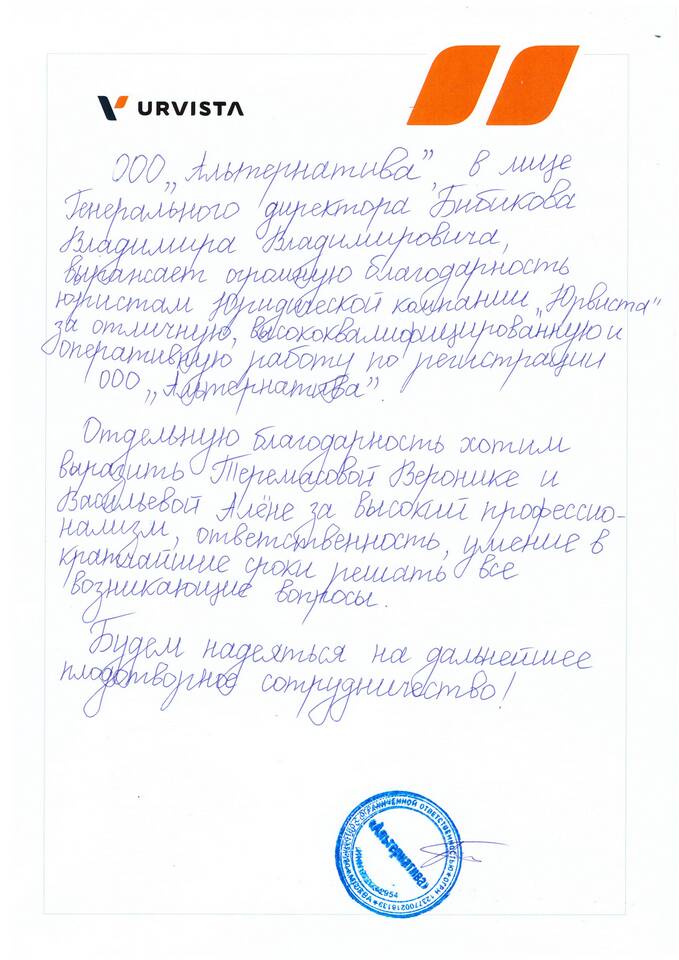 URVISTA
ООО „Альтернатива”, в лице
Генерального директора Бибикова
Владимира Владимировича,
выражает огромную благодарность
юристам Юридической компании „Юрвиста”
за отличную, высококвалифицированную и
оперативную работу по регистрации
ООО „Альтернатива”.
Отдельную благодарность хотим
выразить Теремасовой Веронике и
Васильевой Алёне за высокий профессио-
нализм, ответственность, умение в
кратчайшие сроки решать все
возникающие вопросы.
Будем надеяться на дальнейшее
плодотворное сотрудничество!
ОГРАНИЧЕННОЙ ОТВЕТСТВЕННОСТЬЮ
«Альтернатива»
МОСКВА